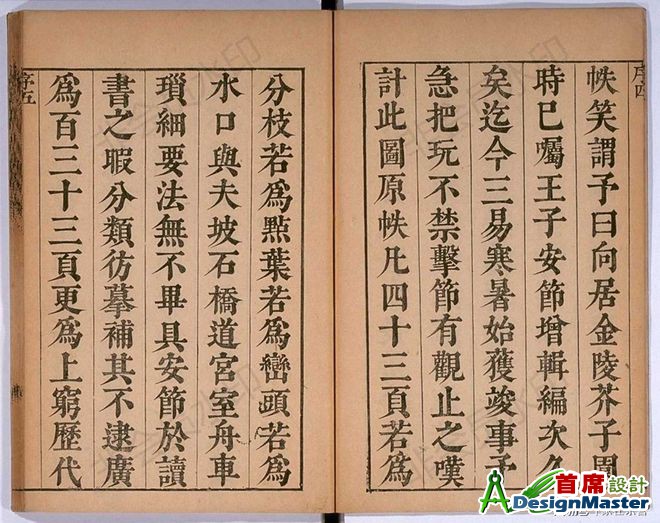 序四
帙笑謂予曰向居金陵芥子園
時已囑王子安節增輯編次久
矣迄今三易寒暑始獲竣事予
急把玩不禁擊節有觀止之嘆
計此圖原帙凡四十三頁若為
分枝若為點葉若為巒頭若為
水口與夫坡石橋道宮室舟車
瑣細要法無不畢具安節於讀
書之暇分類彷摹補其不逮廣
為百三十三頁更為上窮歷代
序五
首席設計
DesignMaster